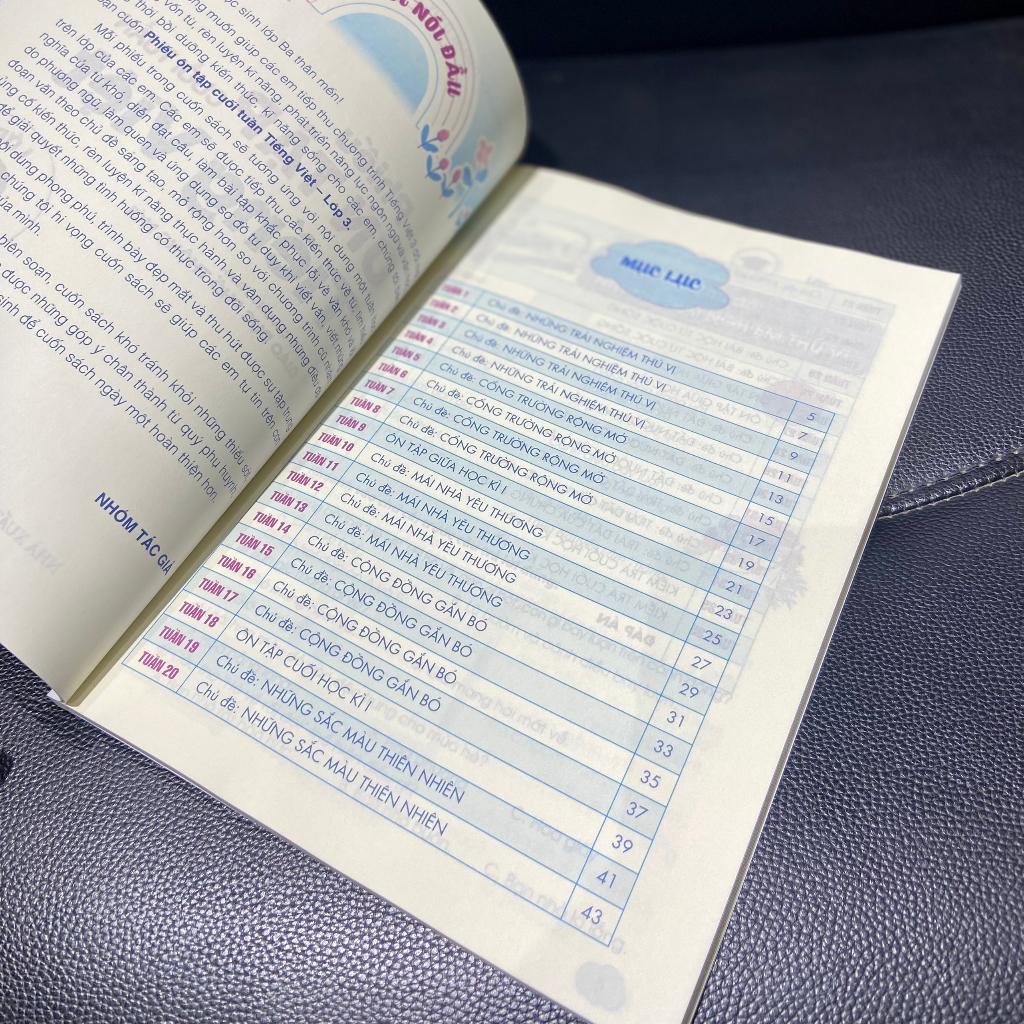 NÓI ĐẦU
học sinh lớp Ba thân mến!
muốn giúp các em tiếp thu chương trình Tiếng Việt 3
vốn từ, rèn luyện kĩ năng, phát triển năng lực ngôn ngữ và văn
thời bồi dưỡng kiến thức, kĩ năng sống cho các em, chúng tôi
cuốn Phiếu ôn tập cuối tuần Tiếng Việt – Lớp 3.
Mỗi phiếu trong cuốn sách sẽ tương ứng với nội dung một tuần
trên lớp của các em. Các em sẽ được tiếp thu các kiến thức về từ
nghĩa của từ khó, diễn đạt câu, làm bài tập khắc phục lỗi về vần khó và
do phương ngữ, làm quen và ứng dụng sơ đồ tư duy khi viết văn, viết
đoạn văn theo chủ đề sáng tạo, mở rộng hơn so với chương trình cũ
củng cố kiến thức, rèn luyện kĩ năng thực hành và vận dụng những điều
để giải quyết những tình huống có thực trong đời sống.
nội dung phong phú, trình bày đẹp mắt và thu hút được sự tập trung
chúng tôi hi vọng cuốn sách sẽ giúp các em tự tin trên con
của mình.
biên soạn, cuốn sách khó tránh khỏi những thiếu sót
được những góp ý chân thành từ quý phụ huynh
sinh để cuốn sách ngày một hoàn thiện hơn.
NHÓM TÁC GIẢ
MỤC LỤC
TUẦN 1 Chủ đề: NHỮNG TRẢI NGHIỆM THÚ VỊ 5
TUẦN 2 Chủ đề: NHỮNG TRẢI NGHIỆM THÚ VỊ 7
TUẦN 3 Chủ đề: NHỮNG TRẢI NGHIỆM THÚ VỊ 9
TUẦN 4 Chủ đề: NHỮNG TRẢI NGHIỆM THÚ VỊ 11
TUẦN 5 Chủ đề: CỔNG TRƯỜNG RỘNG MỞ 13
TUẦN 6 Chủ đề: CỔNG TRƯỜNG RỘNG MỞ 15
TUẦN 7 Chủ đề: CỔNG TRƯỜNG RỘNG MỞ 17
TUẦN 8 Chủ đề: CỔNG TRƯỜNG RỘNG MỞ 19
TUẦN 9 ÔN TẬP GIỮA HỌC KÌ I 21
TUẦN 10 Chủ đề: MÁI NHÀ YÊU THƯƠNG 23
TUẦN 11 Chủ đề: MÁI NHÀ YÊU THƯƠNG 25
TUẦN 12 Chủ đề: MÁI NHÀ YÊU THƯƠNG 27
TUẦN 13 Chủ đề: MÁI NHÀ YÊU THƯƠNG 29
TUẦN 14 Chủ đề: CỘNG ĐỒNG GẮN BÓ 31
TUẦN 15 Chủ đề: CỘNG ĐỒNG GẮN BÓ 33
TUẦN 16 Chủ đề: CỘNG ĐỒNG GẮN BÓ 35
TUẦN 17 Chủ đề: CỘNG ĐỒNG GẮN BÓ 37
TUẦN 18 ÔN TẬP CUỐI HỌC KÌ I 39
TUẦN 19 Chủ đề: NHỮNG SẮC MÀU THIÊN NHIÊN 41
TUẦN 20 Chủ đề: NHỮNG SẮC MÀU THIÊN NHIÊN 43